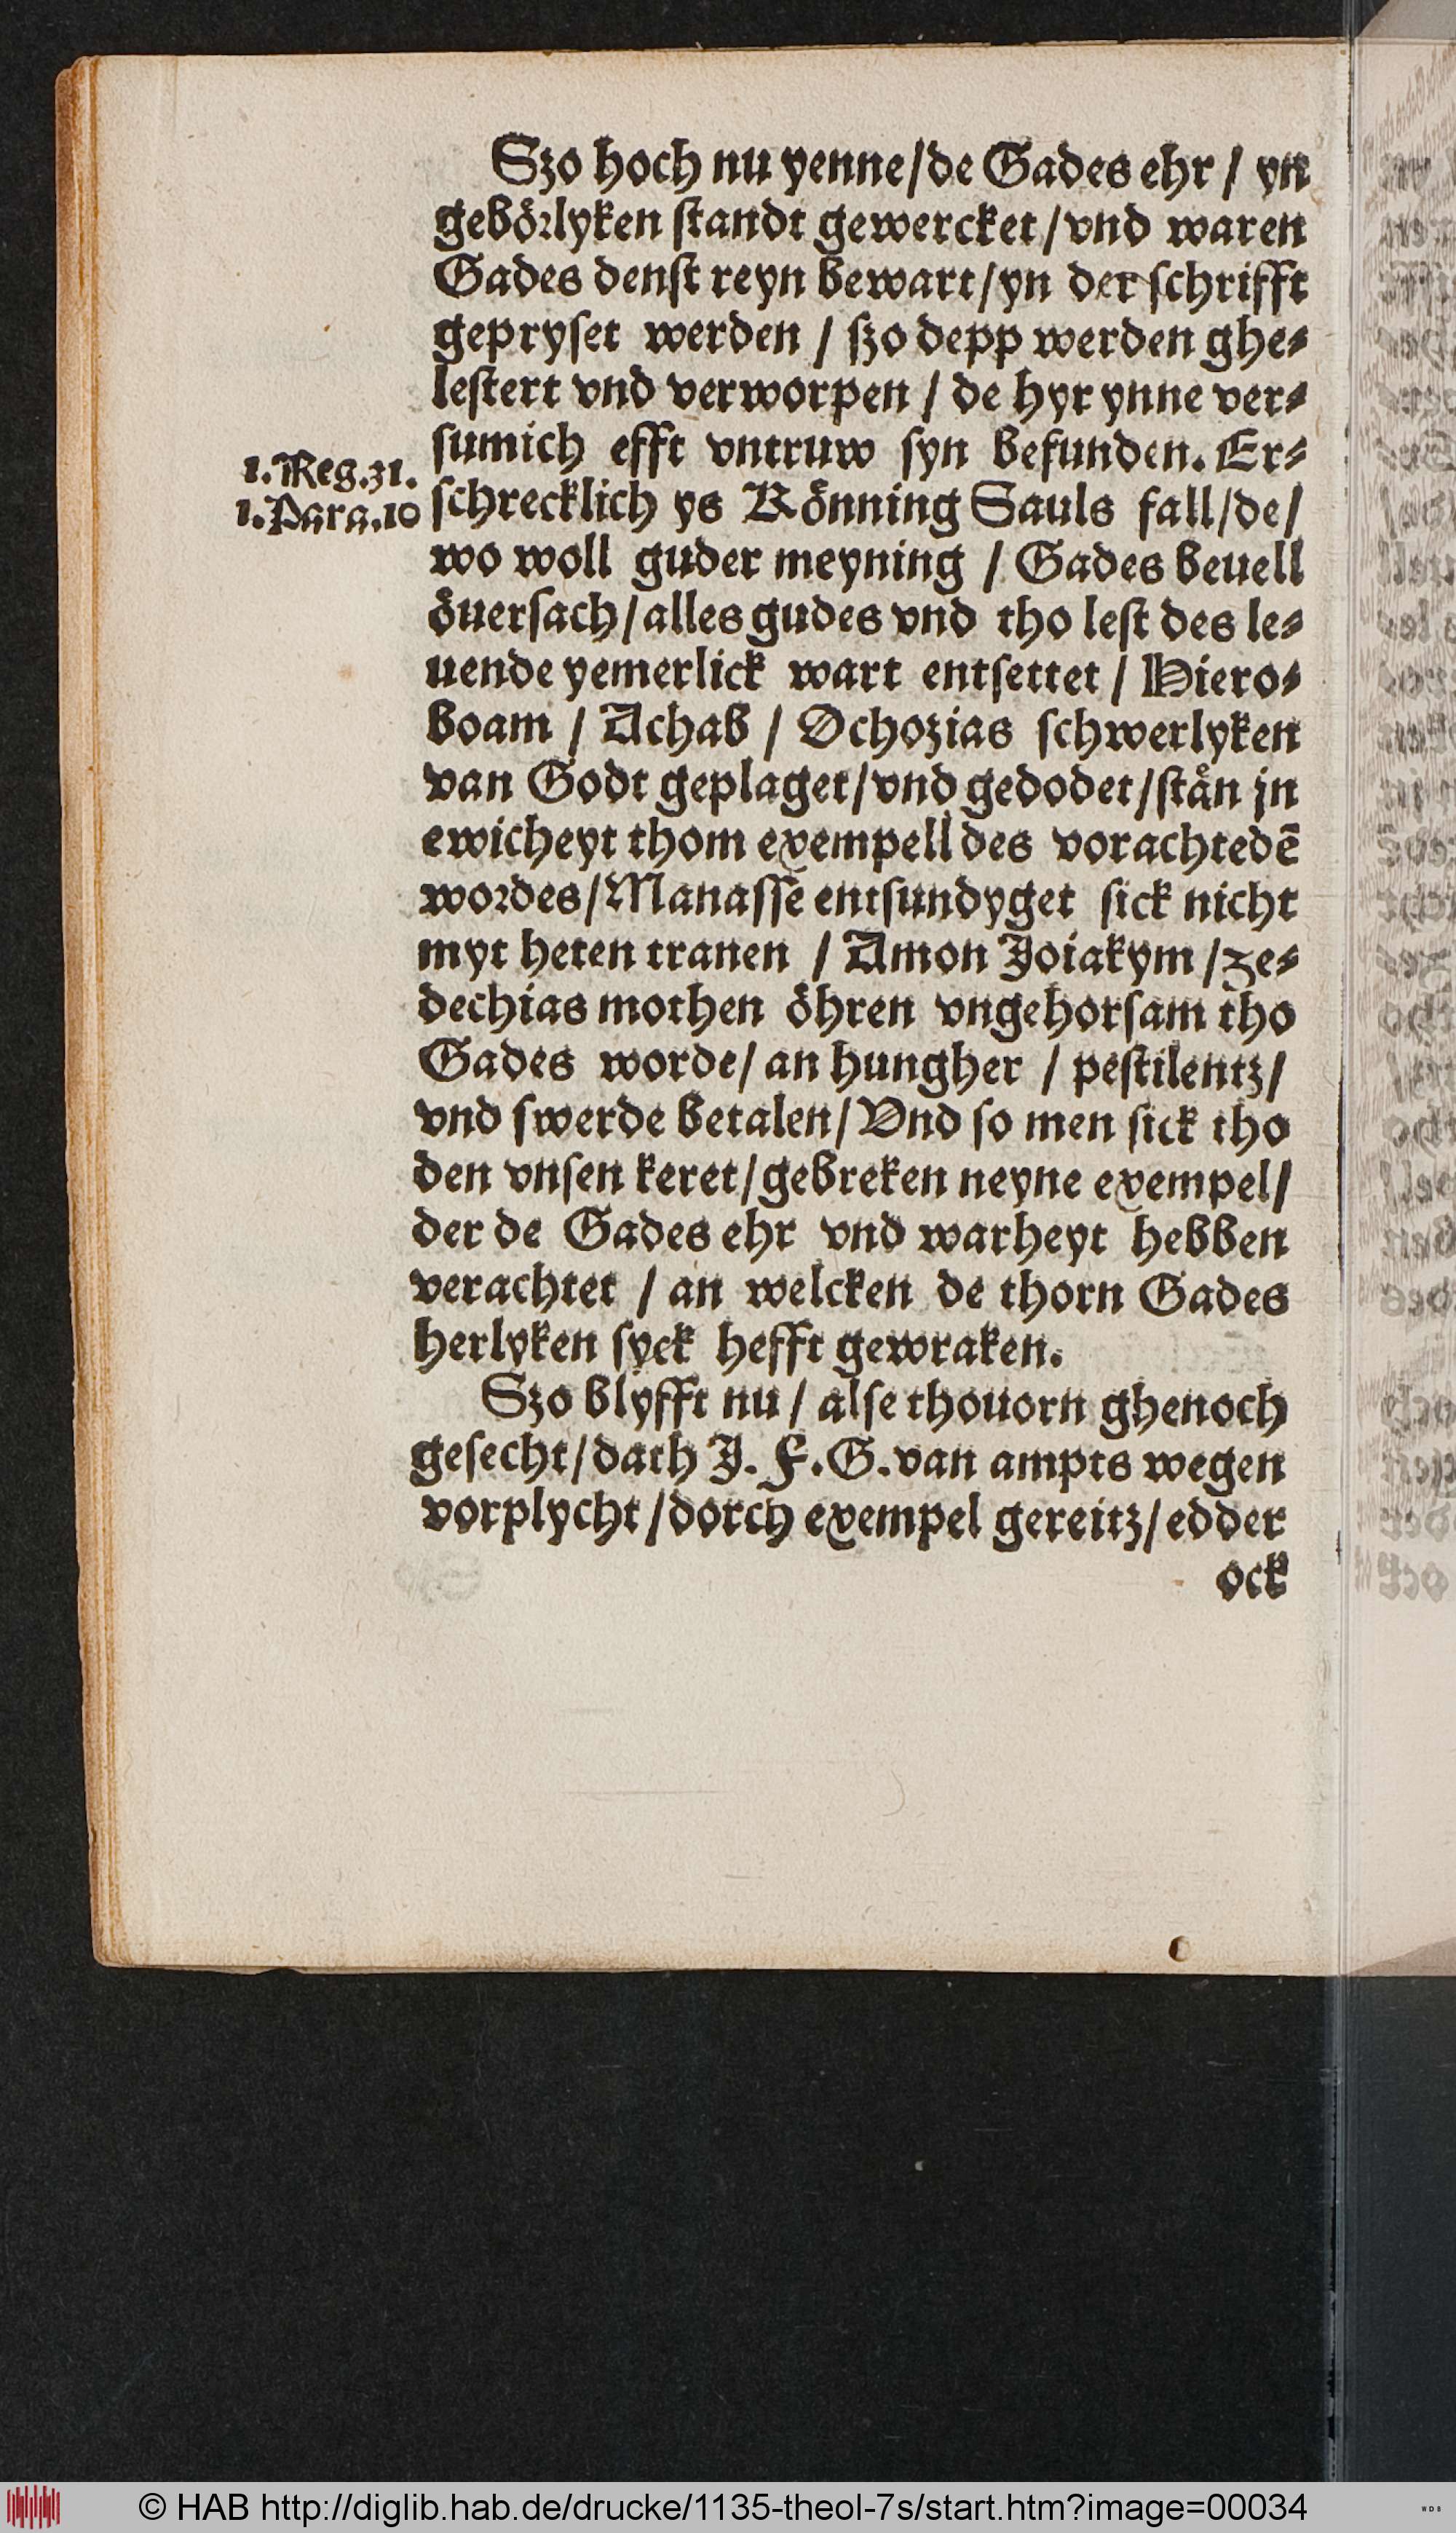 Szo hoch nu yenne/de Gades ehr / yn
gebörlyken ſtandt gewercket/vnd waren
Gades denſt reyn bewart/yn der ſchrifft
gepryſet werden / ſzo depp werden ghe⸗
leſtert vnd verworpen / de hyr ynne ver⸗
ſumich efft vntruw ſyn befunden. Er⸗
1. Reg. 31.
ſchrecklich ys Könning Sauls fall/de/
1. Para. 10
wo woll guder meyning / Gades beuell
öuerſach/alles gudes vnd tho leſt des le⸗
uende yemerlick wart entſettet / Hiero⸗
boam / Achab / Ochozias ſchwerlyken
van Godt geplaget/vnd gedodet/ſtån jn
ewicheyt thom exempell des vorachtedē
wordes/Manaſſe entſundyget ſick nicht
myt heten tranen / Amon Joiakym / ze⸗
dechias mothen öhren vngehorſam tho
Gades worde/ an hungher / peſtilentz/
vnd ſwerde betalen/ Vnd ſo men ſick tho
den vnſen keret/gebreken neyne exempel/
der de Gades ehr vnd warheyt hebben
verachtet / an welcken de thorn Gades
herlyken ſyck hefft gewraken.
Szo blyfft nu / alſe thouorn ghenoch
geſecht/dath J. F. G. van ampts wegen
vorplycht/dorch exempel gereitz/edder
ock
© HAB http://diglib.hab.de/drucke/1135-theol-7s/start.htm?image=00034